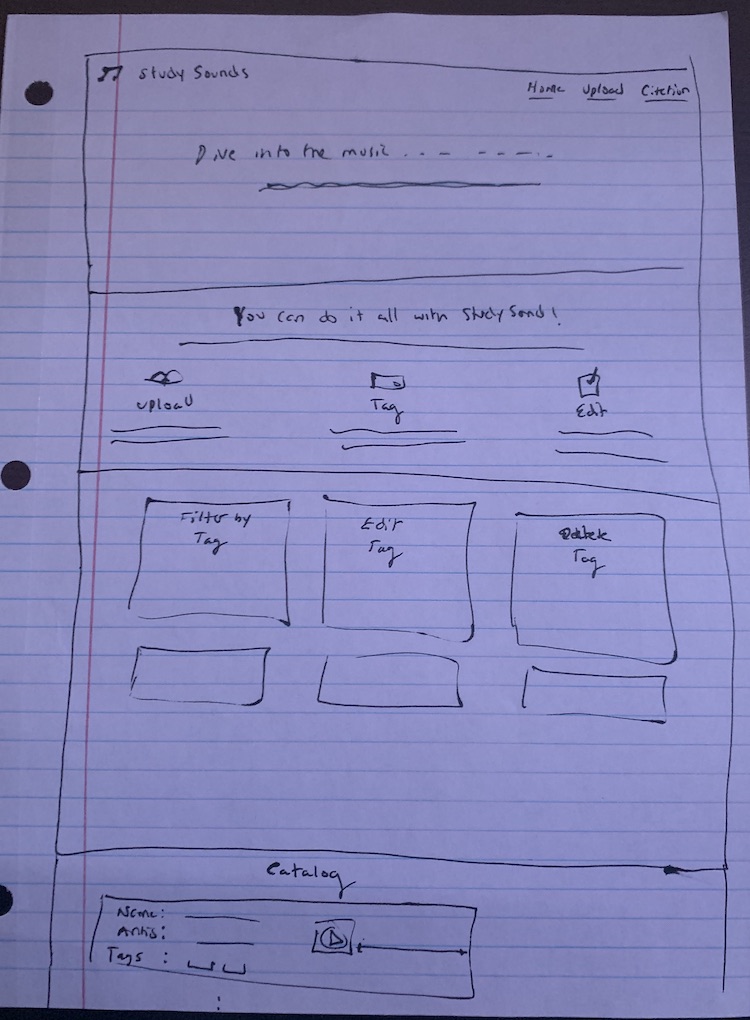 Study Sounds
Home Upload Citation
Dive into the music... - - - - . -
You can do it all with Study Sound!
Upload
Tag
Edit
Filter by
Tag
Edit
Tag
Delete
Tag
Catalog
Name:
Artis:
Tags :